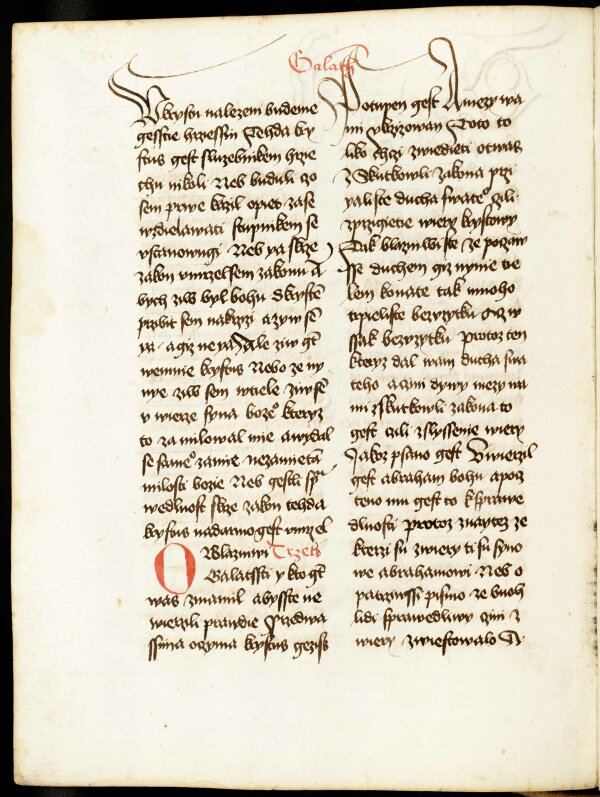 Galath
W krystu nalezeni budeme
gesstie hrzessni Tehda kry
stus gest sluzebnikem hrze
chu nikoli Neb buduli czo
sem prwe kazil opiet zase
wzdielawati stupnikem se
vstanowugi Neb ya skrze
zakon vmrzel sem zakonu A
bych ziw byl bohu Skrystē
przibit sem nakrzizi a ziw sē
ya agiz ne ya Ale ziw gt
wemnie krystus Neboze ny
nye ziw sem wtiele ziw sē
v wierze syna bozeo kteryz
to zamilowal mie awydal
se sameo zamie nezamietā
milosti bozie Neb gestli spr
wedlnost skrze zakon tehda
krystus nadarmo gest vmrzel
O Blazniwi Trzeti
Galatssti y kto gt
was zmamil abysste ne
wierzili prawdie Przedwa
ssima oczyma krystus geziss
Potupen gest A mezy wa
mi vkrzizowan Toto to
liko chczi zwiedieti otwas
z skutkowli zakona przi
yaliste ducha swateo czili
zprzigietie wiery krystowy
Tak blazniwi ste ze poczaw
sse duchem giz nynie tie
lem konate tak mnoho
trpieliste bezvzytku Gizw
ssak bezvzytku protoz ten
kteryz dal wam ducha swa
teho aczini dywy mezy wa
mi zskutkowli zakona to
gest czili zslyssenie wiery
Jakoz psano gest Vwierzil
gest abraham bohu apocz
teno mu gest to k sprawe
dlnosti protoz znaytez ze
kterzi su zwiery ti su syno
we abrahamowi Neb o
patrziwssi pismo ze buoh
lidi sprawedliwy czini z
wiery zwiestowalo A